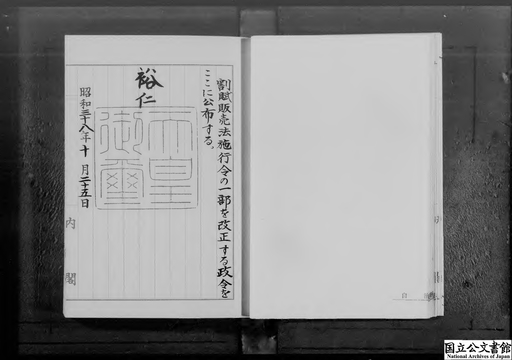 割賦販売法施行令の一部を改正する政令を
ここに公布する。
裕仁
天皇
御璽
昭和三十八年十月二十五日
内閣
国立公文書館
National Archives of Japan